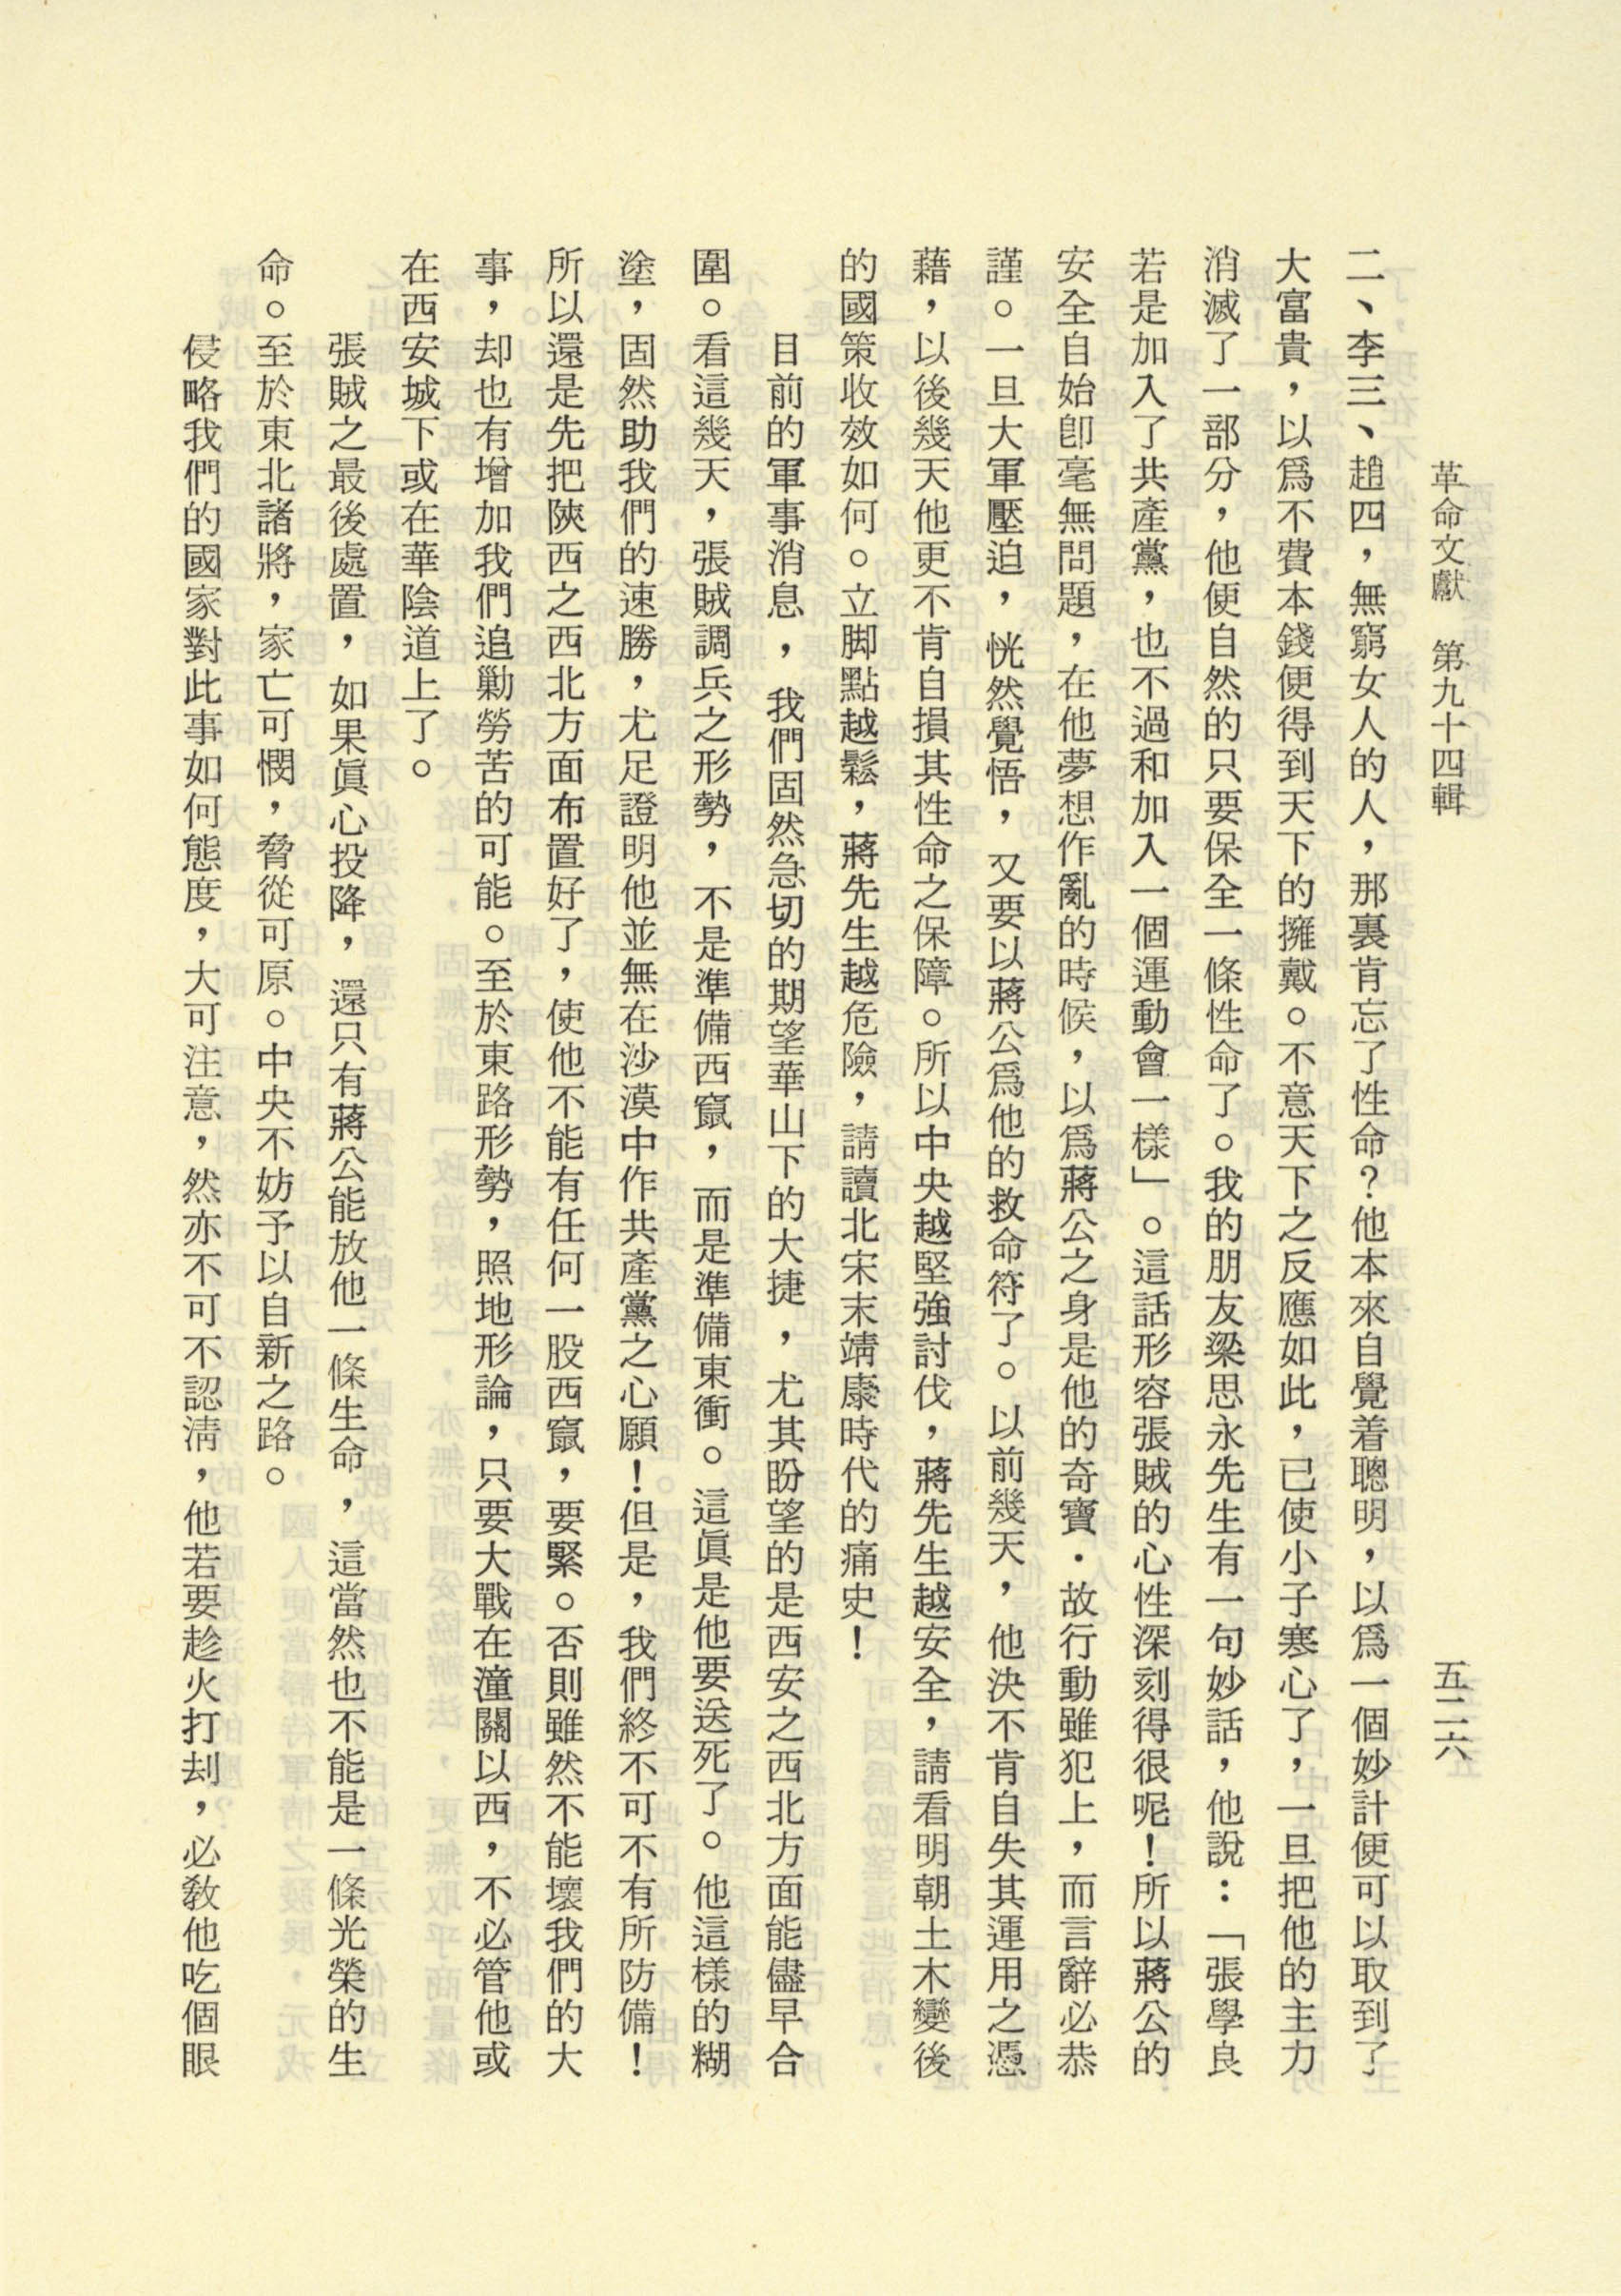 革命文獻　第九十四輯　五二六
二、李三、趙四，無窮女人的人，那裏肯忘了性命？他本來自覺着聰明，以爲一個妙計便可以取到了
大富貴，以爲不費本錢便得到天下的擁戴。不意天下之反應如此，已使小子寒心了，一旦把他的主力
消滅了一部分，他便自然的只要保全一條性命了。我的朋友梁思永先生有一句妙話，他說：「張學良
若是加入了共產黨，也不過和加入一個運動會一樣」。這話形容張賊的心性深刻得很呢！所以蔣公的
安全自始卽毫無問題，在他夢想作亂的時候，以爲蔣公之身是他的奇寶・故行動雖犯上，而言辭必恭
謹。一旦大軍壓迫，恍然覺悟，又要以蔣公爲他的救命符了。以前幾天，他決不肯自失其運用之憑
藉，以後幾天他更不肯自損其性命之保障。所以中央越堅強討伐，蔣先生越安全，請看明朝土木變後
的國策收效如何。立脚點越鬆，蔣先生越危險，請讀北宋末靖康時代的痛史！
目前的軍事消息，我們固然急切的期望華山下的大捷，尤其盼望的是西安之西北方面能儘早合
圍。看這幾天，張賊調兵之形勢，不是準備西竄，而是準備東衝。這眞是他要送死了。他這樣的糊
塗，固然助我們的速勝，尤足證明他並無在沙漠中作共產黨之心願！但是，我們終不可不有所防備！
所以還是先把陝西之西北方面布置好了，使他不能有任何一股西竄，要緊。否則雖然不能壞我們的大
事，却也有增加我們追勦勞苦的可能。至於東路形勢，照地形論，只要大戰在潼關以西，不必管他或
在西安城下或在華陰道上了。
張賊之最後處置，如果眞心投降，還只有蔣公能放他一條生命，這當然也不能是一條光榮的生
命。至於東北諸將，家亡可憫，脅從可原。中央不妨予以自新之路。
侵略我們的國家對此事如何態度，大可注意，然亦不可不認淸，他若要趁火打刦，必敎他吃個眼